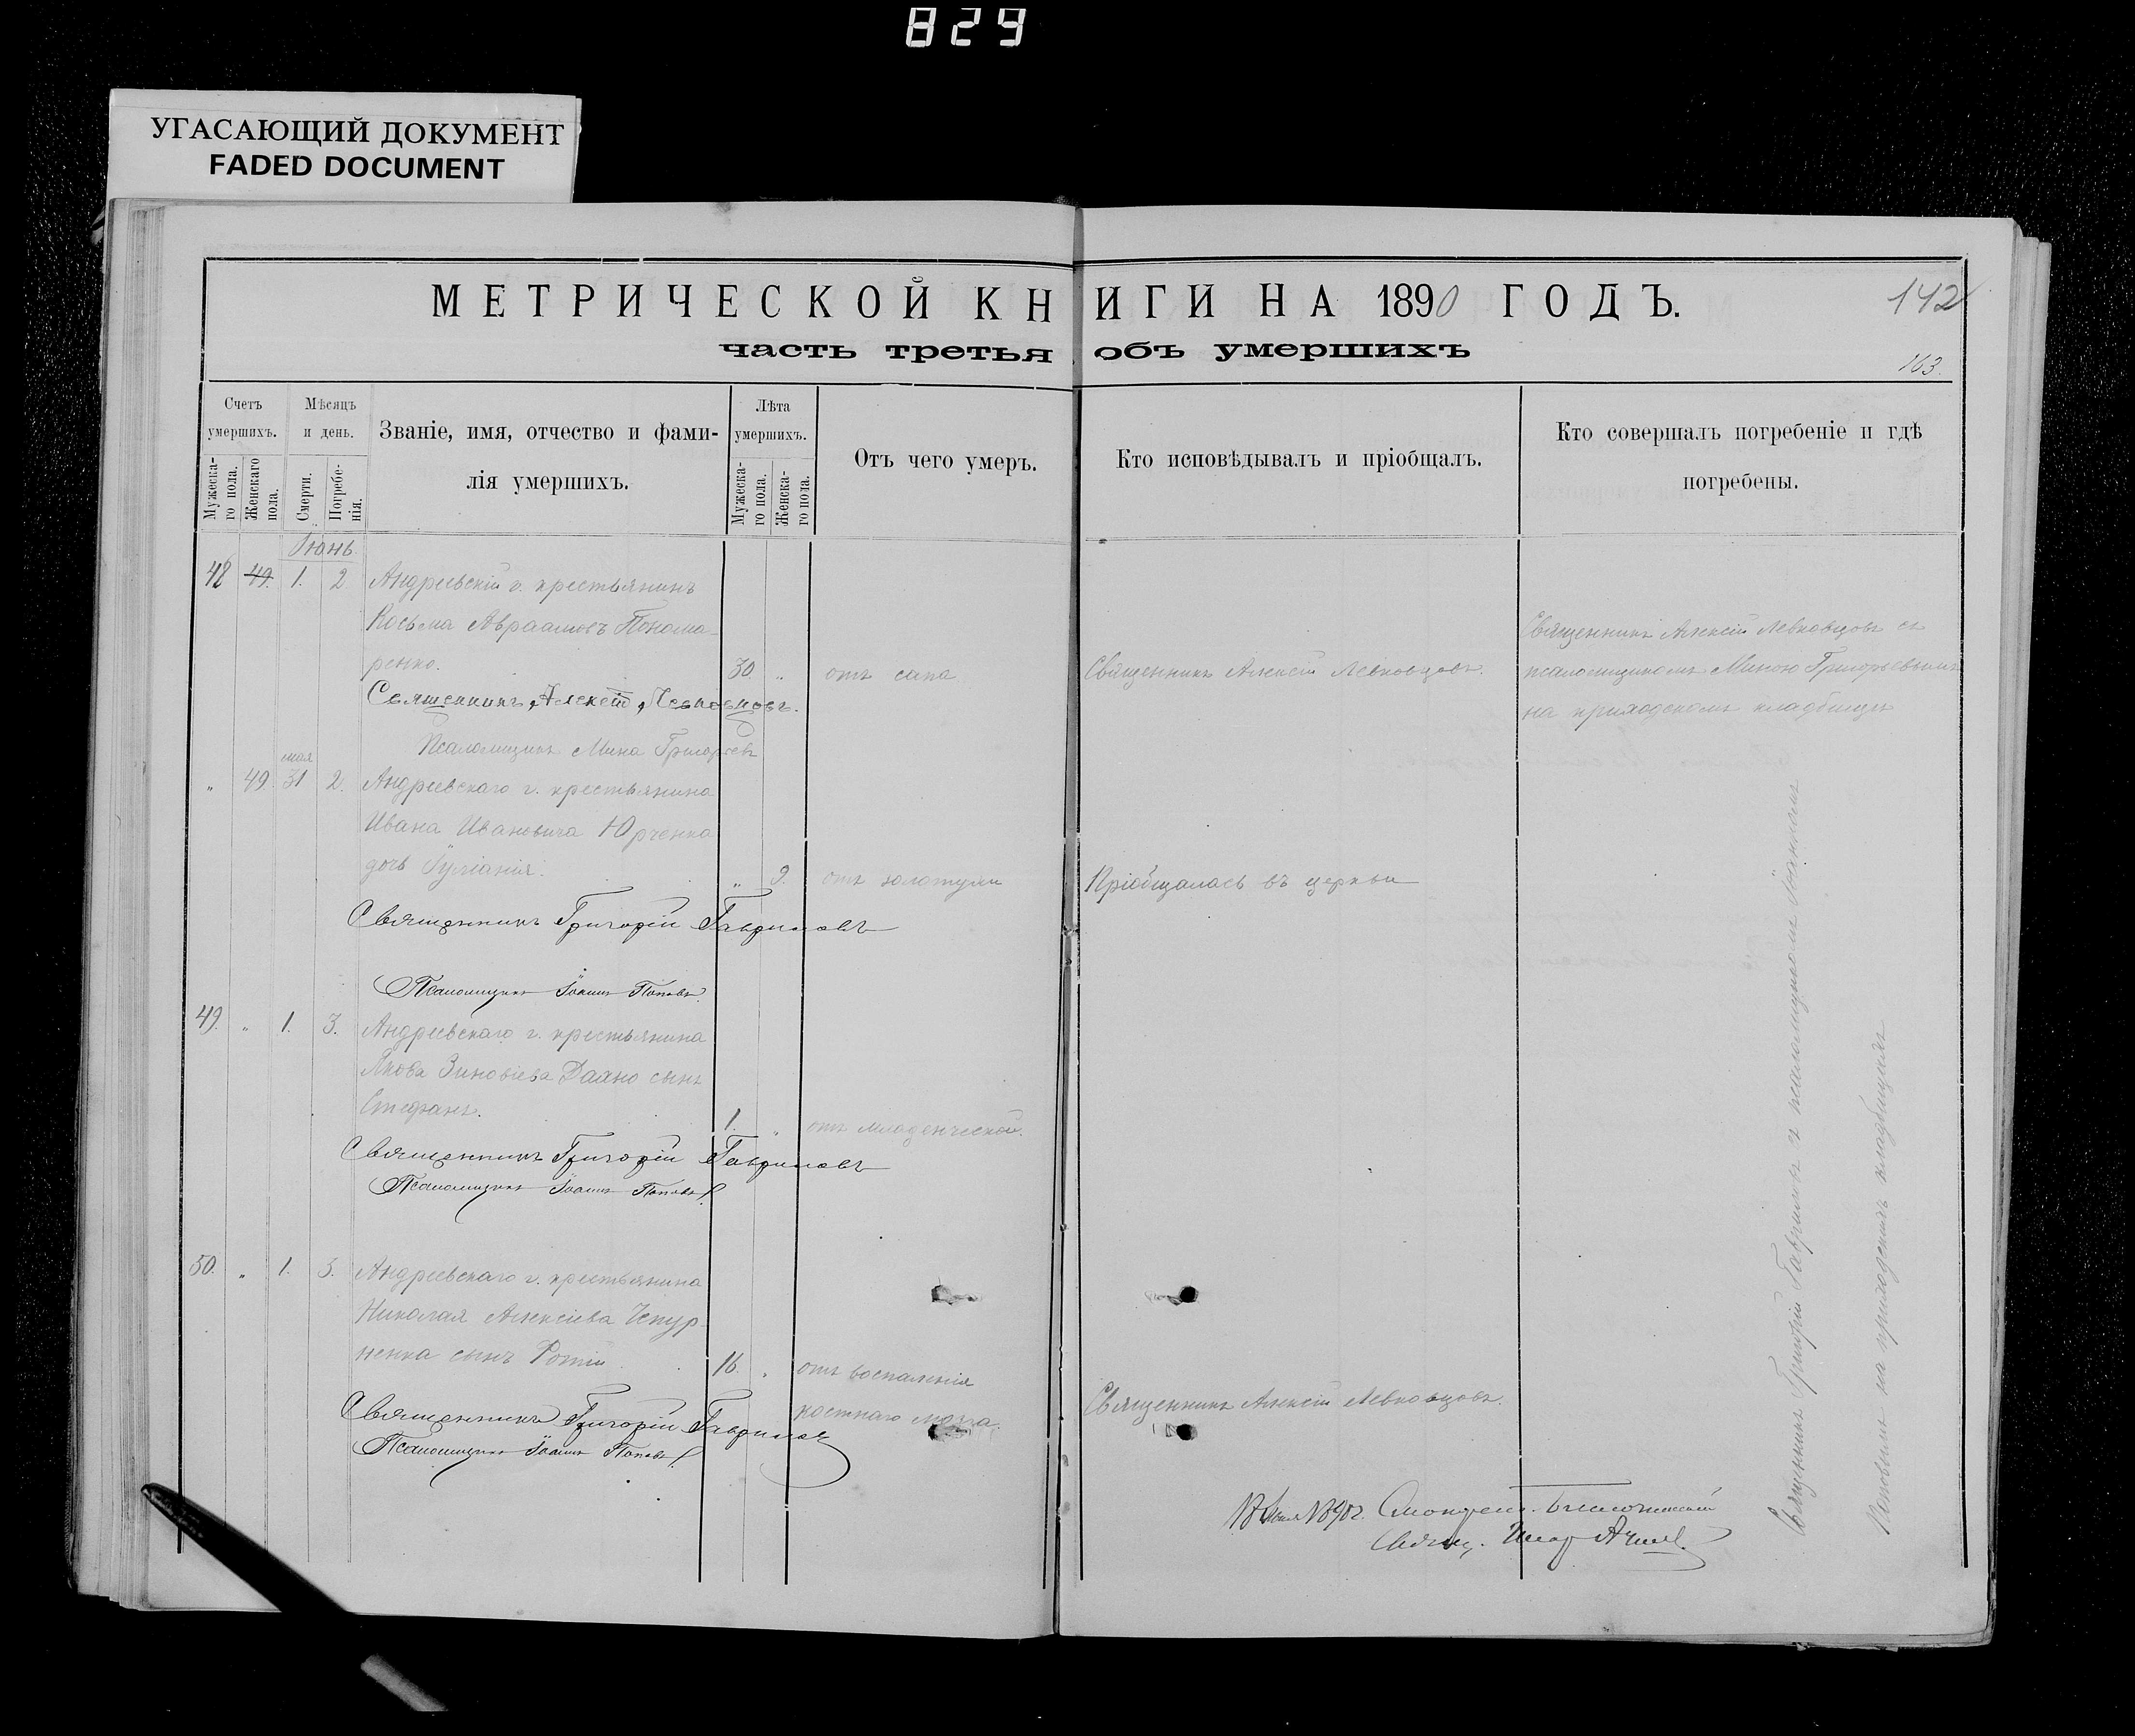 829
УГАСАЮЩИЙ ДОКУМЕНТ
FADED DOCUMENT
МЕТРИЧЕСКОЙ КНИГИ НА 1890 ГОДЪ.
142
часть третья объ умершихъ
163.
Счетъ умершихъ.
Мужеска-го пола.
Женскаго пола.
Мѣсяцъ и день.
Смерти.
Погребе-нія.
Званіе, имя, отчество и фами-
лія умершихъ.
Лѣта умершихъ.
Мужеска-го пола.
Женска-го пола.
Отъ чего умеръ.
Кто исповѣдывалъ и пріобщалъ.
Кто совершалъ погребеніе и гдѣ
погребены.
Іюнь
48 49. 1. 2 Андреевскій г. крестьянинъ
Косьма Авраамовъ Понома-
ренко. 30. „ отъ сапа
Священникъ Алексій Левковцовъ.
Священникъ Алексій Левковцовъ съ
псаломщикомъ Миною Григорьевымъ
на приходскомъ кладбищѣ
Священникъ, Алексій, Левковцовъ.
Псаломщикъ Мина Григорьевъ
мая
„ 49. 31 2. Андреевскаго г. крестьянина
Ивана Ивановича Юрченка
дочь Іуліанія. „ 9. отъ золотухи
Пріобщалась въ церкви
Священникъ Григорій Гавриловъ
Псаломщикъ Іоаннъ Поповъ
49. „ 1. 3. Андреевскаго г. крестьянина
Якова Зиновіева сынъ
Стефанъ. 1. „ отъ младенческой.
Священникъ Григорій Гавриловъ
Псаломщикъ Іоаннъ Поповъ
50. „ 1. 3. Андреевскаго г. крестьянина
Николая Алексіева Чепур-
ненка сынъ Фотій. 16. „ отъ воспаленія
костнаго мозга.
Священникъ Алексій Левковцовъ.
Священникъ Григорій Гавриловъ
Псаломщикъ Іоаннъ Поповъ
Священникъ Григорій Гавриловъ съ псаломщикомъ Іоанномъ
Поповымъ на приходскихъ кладбищахъ
1890г.
Свящ.